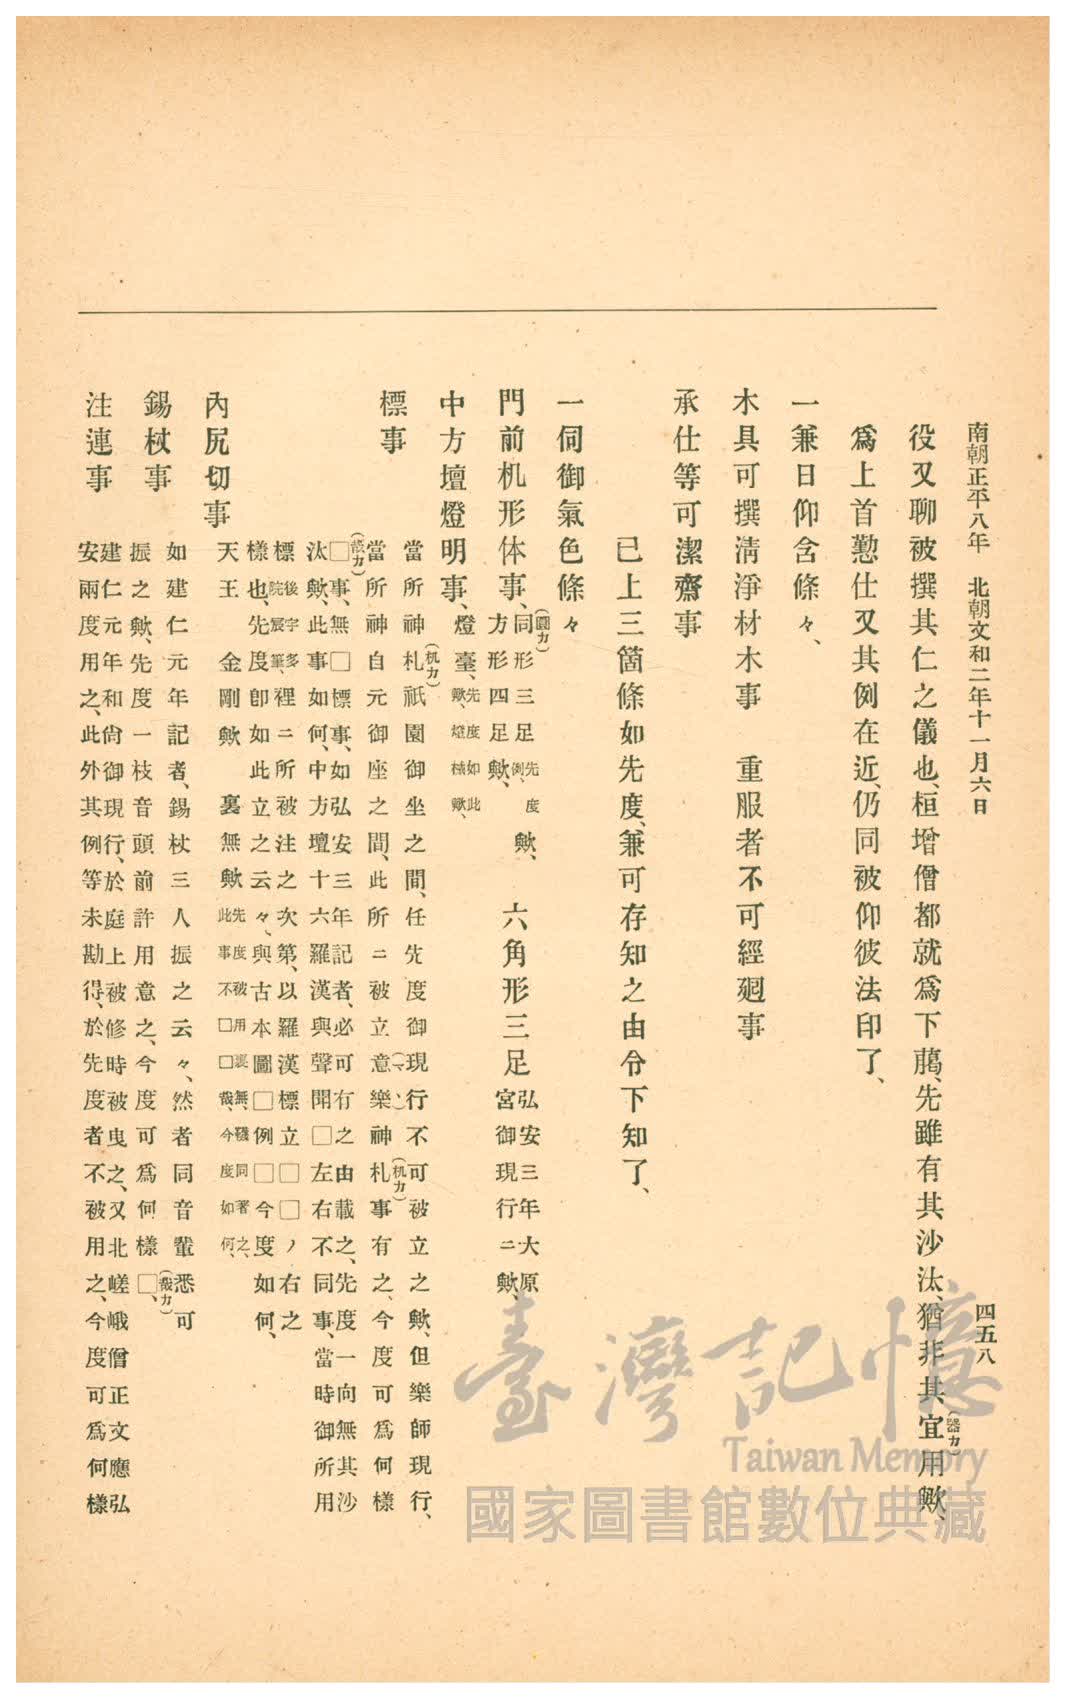 南朝正平八年　北朝文和二年十一月六日
四五八
役又聊被撰其仁之儀也、桓增僧都就爲下﨟、先雖有其沙汰、猶非其宜用歟、
(器カ)
爲上首懃仕又其例在近、仍同被仰彼法印了、
一兼日仰含條々、
木具可撰淸淨材木事　重服者不可經廻事
承仕等可潔齋事
已上三箇條如先度、兼可存知之由令下知了、
一伺御氣色條々
門前机形体事、同形三足先度例、歟、
(圓カ)
方形四足歟、
六角形三足弘安三年大原
宮御現行ニ歟、
中方壇燈明事、燈臺、先度如此
歟、燈械歟、
標事
當所神札祇園御坐之間、任先度御現行不可被立之歟、但樂師現行、
(机カ)
(マヽ)
當所神自元御座之間、此所ニ被立意樂神札事有之、今度可爲何樣
(机カ)
□事、無□標事、如弘安三年記者、必可有之由載之、先度一向無其沙
(哉カ)
汰歟、此事如何、中方壇十六羅漢與聲聞□左右不同事、當時御所用
標後宇多
院宸筆、裡ニ所被注之次第、以羅漢標立□□ノ右之
樣也、先度卽如此立之云々、與古本圖□例□今度如何、
內尻切事
天王　金剛歟　裏無歟先度被用裏無、襪同著之、
此事不□□哉、今度如何、
錫杖事
如建仁元年記者、錫杖三人振之云々、然者同音輩悉可
振之歟、先度一枝音頭前許用意之、今度可爲何樣□、
(哉カ)
注連事
建仁元年和尙御現行、於庭上被修時被曳之、又北嵯峨僧正文應弘
安兩度用之、此外其例等未勘得、於先度者不被用之、今度可爲何樣
臺灣記憶
Taiwan Memory
國家圖書館數位典藏